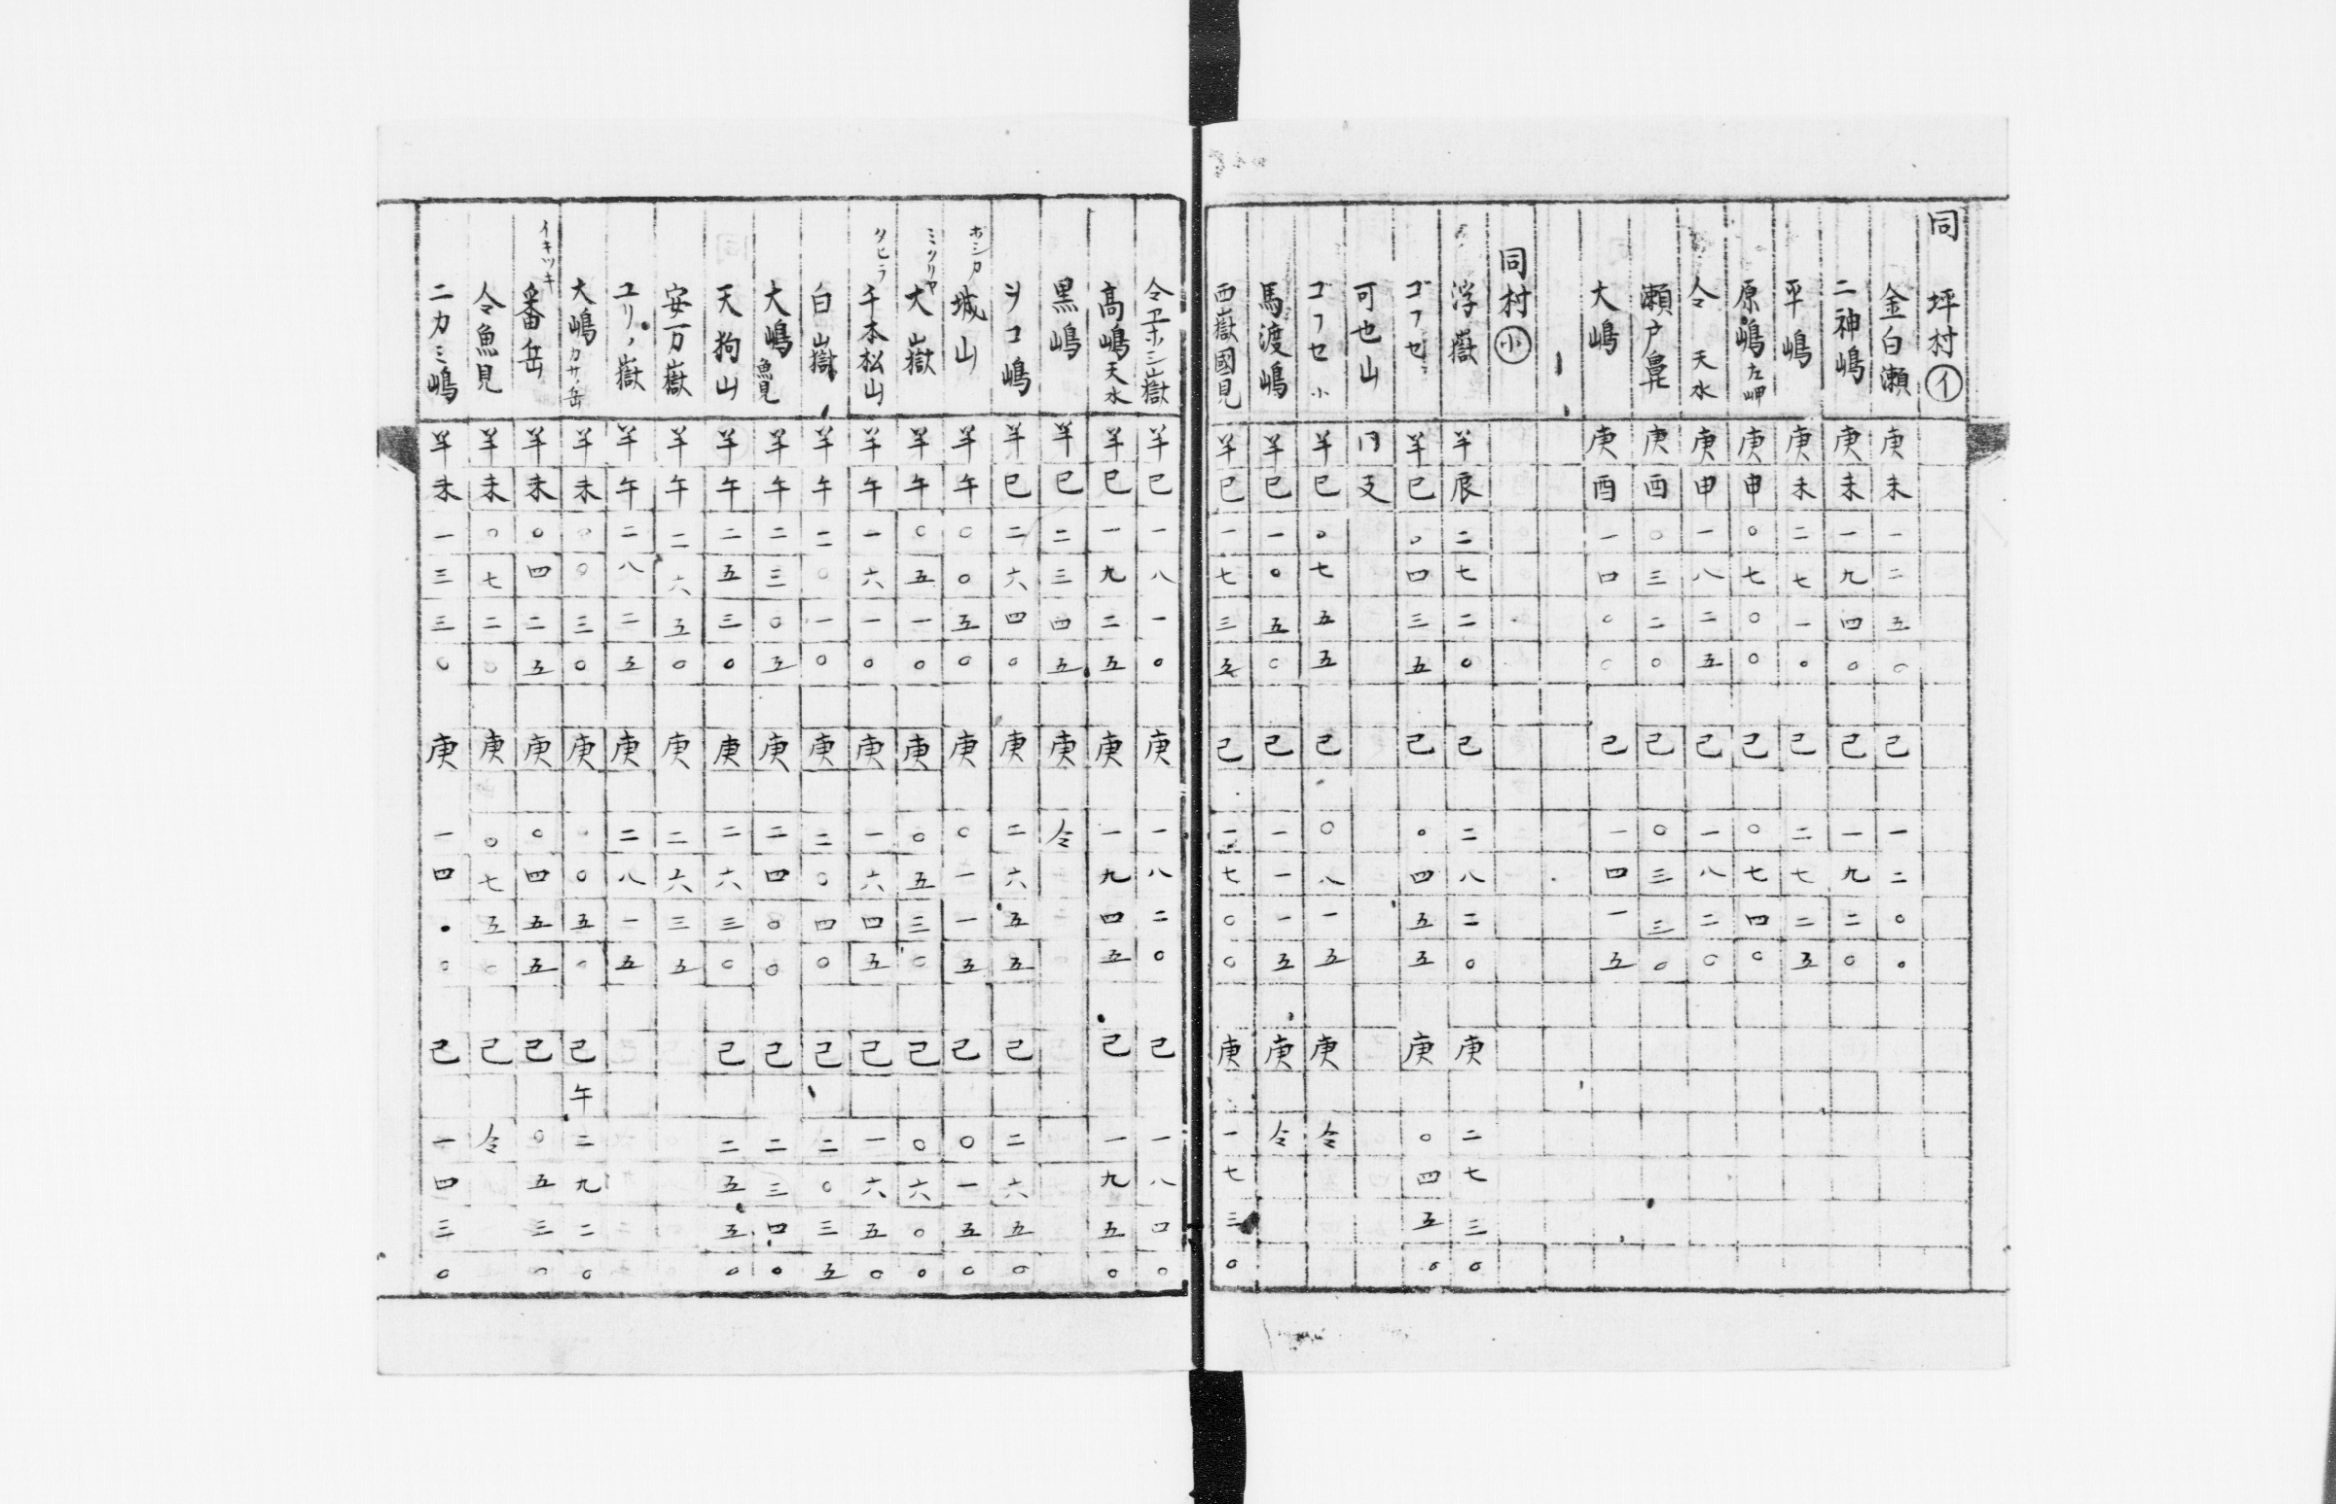 同 坪村㋑
金白瀬 庚未一二五〇 己一二〇〇
二神嶋 庚未一九四〇 己一九二〇
平嶋 庚未二七一〇 己二七二五
原嶋左岬 庚申〇七〇〇 己〇七四〇
仝 天水 庚申一八二五 己一八二〇
瀬戸鼻 庚酉〇三二〇 己〇三三〇
大嶋 庚酉一四〇〇 己一四一五
同村㊥小
浮嶽 羊辰二七二〇 己二八二〇 庚二七三〇
ゴフセ 羊巳〇四三五 己〇四五五 庚〇四五〇
可也山 冂支
ゴフセ小 羊巳〇七五五 己〇八一五 庚仝
馬渡嶋 羊巳一〇五〇 己一一一五 庚仝
西嶽國見 羊巳一七三五 己一七〇〇 庚一七三〇
仝ヱホシ嶽 羊巳一八一〇 庚一八二〇 己一八四〇
高嶋天水 羊巳一九二五 庚一九四五 己一九五〇
黒嶋 羊巳二三四五 庚仝
ヲコ嶋 羊巳二六四〇 庚二六五五 己二六五〇
ホシカ 城山 羊午〇〇五〇 庚〇一一五 己〇一五〇
ミツリヤ 大嶽 羊午〇五一〇 庚〇五三〇 己〇六〇〇
タヒラ 千本松山 羊午一六一〇 庚一六四五 己一六五〇
白嶽 羊午二〇一〇 庚二〇四〇 己二〇三五
大嶋魚見 羊午二三〇五 庚二四〇〇 己二三四〇
天狗山 羊午二五三〇 庚二六三〇 己二五五〇
安万嶽 羊午二六五〇 庚二六三五
ユリノ嶽 羊午二八二五 庚二八一五
大嶋カサノ岳 羊未〇〇三〇 庚〇〇五〇 己午二九二〇
イキツキ 番岳 羊未〇四二五 庚〇四五五 己〇五三〇
仝魚見 羊未〇七二〇 庚〇七五〇 己仝
二カミ嶋 羊未一三三〇 庚一四〇〇 己一四三〇